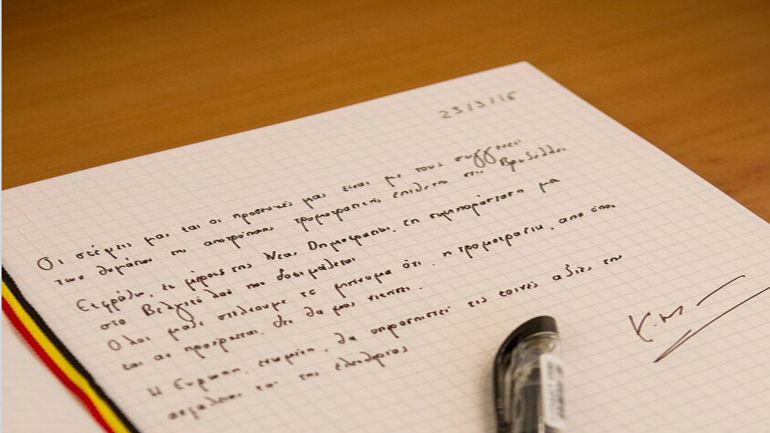 23/3/16
Οι σκέψεις μας και οι προσευχές μας είναι με τους συγγενείς
των θυμάτων της αποτρόπαιας τρομοκρατικής επίθεσης στις Βρυξέλλες
Εκφράζω, εκ μέρους της Νέας Δημοκρατίας, τη συμπαράσταση μας
στο Βελγικό λαό που δοκιμάζεται
Όλοι μαζί στέλνουμε το μήνυμα ότι η τρομοκρατία, από όπου
και αν προέρχεται, δεν θα μας νικήσει.
Η Ευρώπη, ενωμένη, θα υπερασπιστεί τις κοινές αξίες της
ασφάλειας και της ελευθερίας
Κ.Μ